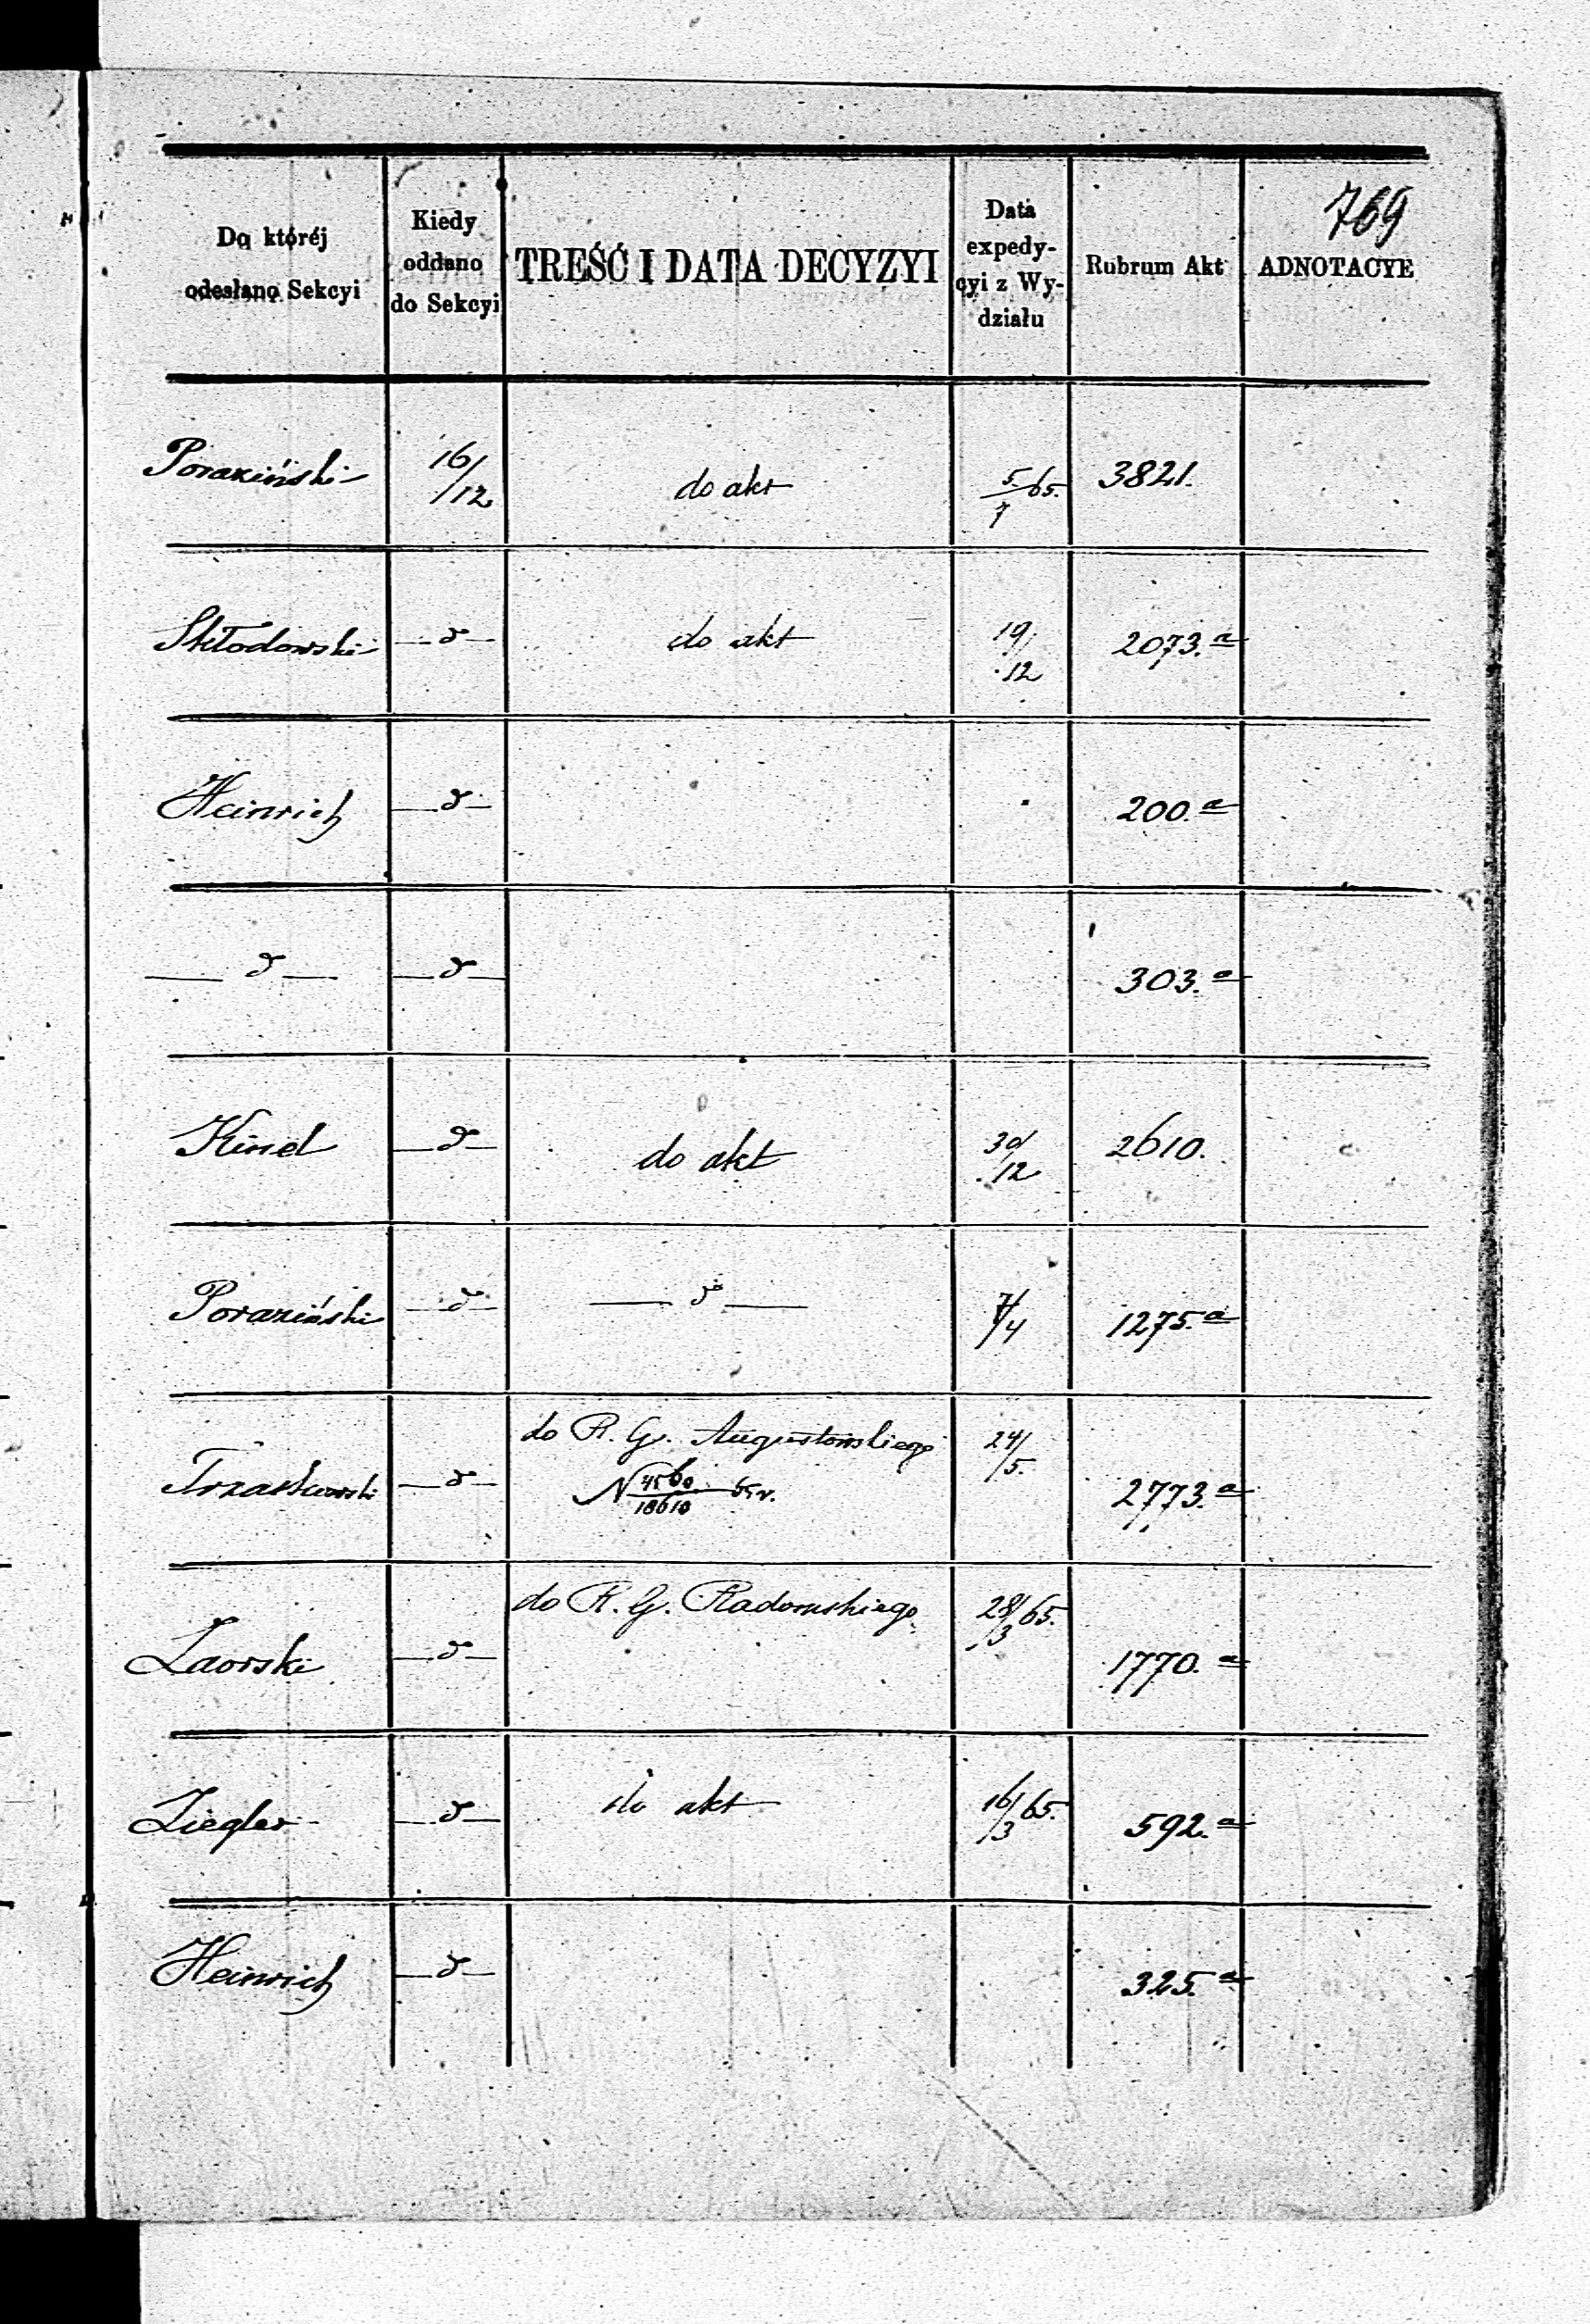 769
Do któréj odesłano Sekcyi
Kiedy oddano do Sekcyi
TREŚĆ I DATA DECYZYI
Data expedycyi z Wydziału
Rubrum Akt
ADNOTACYE
Poraziński 16/12 do akt 5/7 65. 3821.
Skłodowski —d— do akt 19/12 2073.a
Heinrich —d— 200.a
—d— —d— 303.a
Kinel —d— do akt 30/12 2610.
Poraziński —d— —d— 7/4 1275.a
Trzaskowski —d— do R. G. Augustowskiego 24/5. 2773.a
N 4560/18610
Zaorski —d— do R. G. Radomskiego 28/3 65. 1770.a
Ziegler —d— do akt 16/3 65. 592.a
Heinrich —d— 325.a